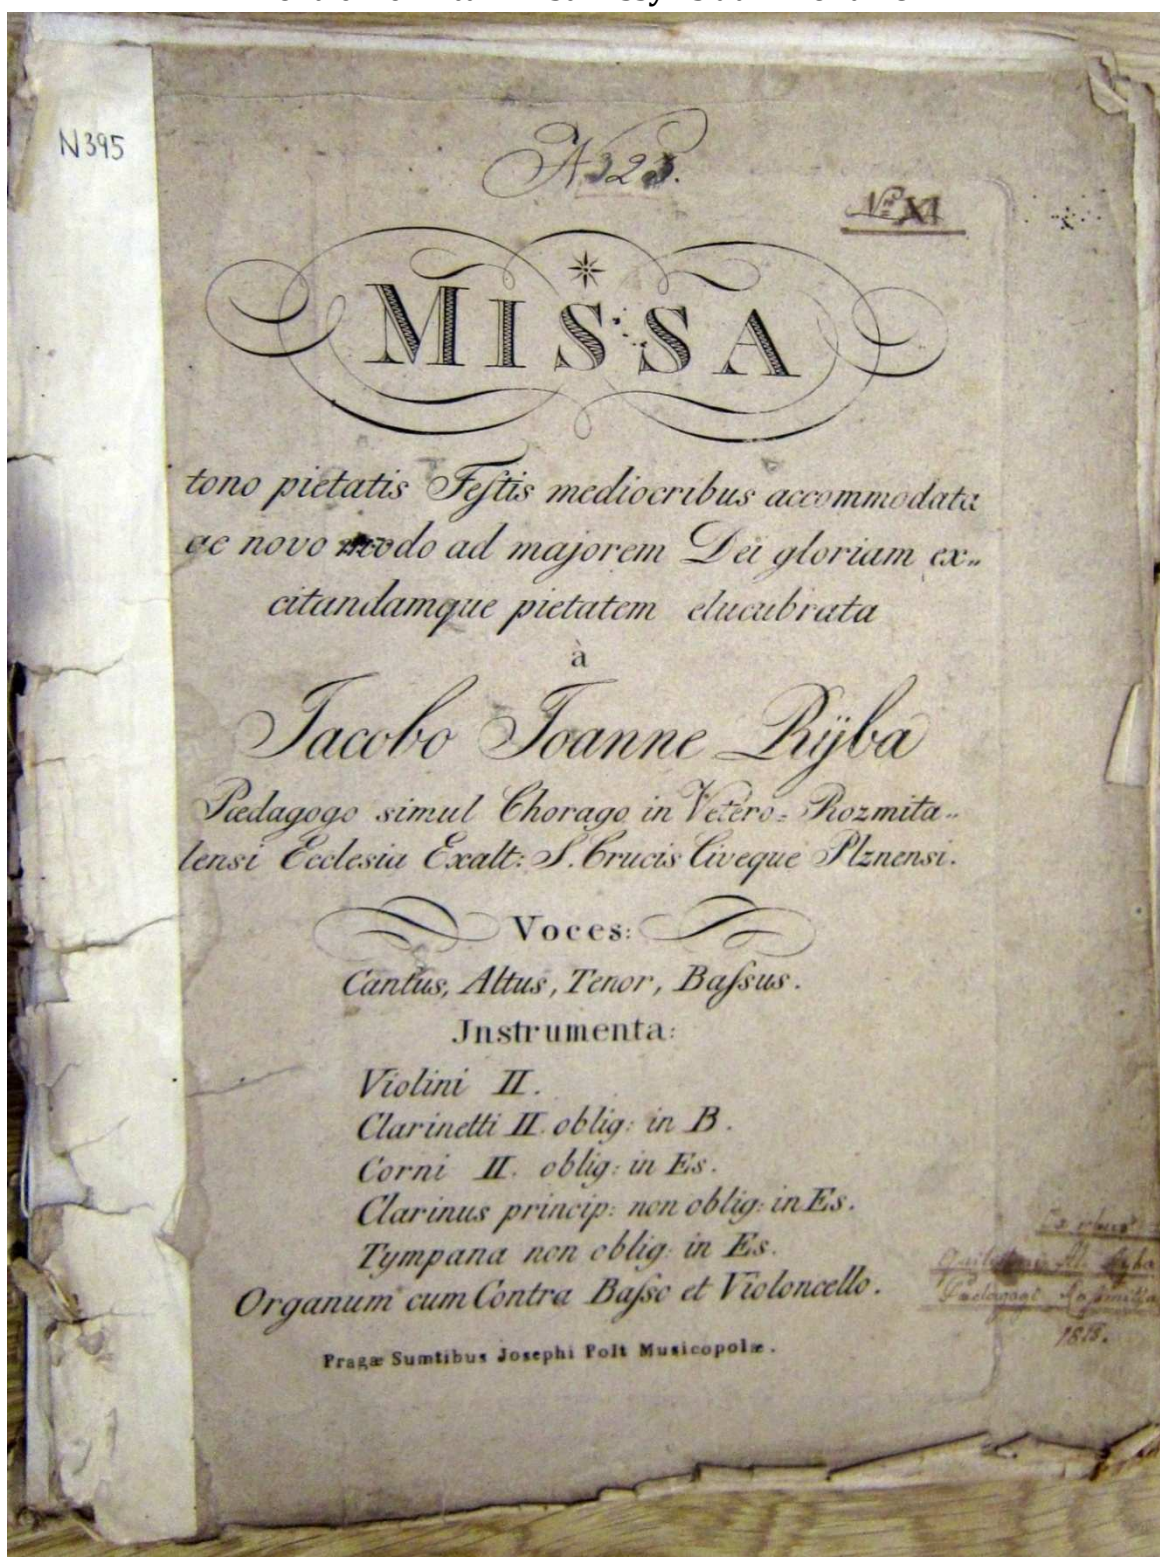 N395
A 323.
Nro XI
MISSA
tono pietatis Feſtis mediocribus accommodata
ac novo modo ad majorem Dei gloriam ex„
citandamque pietatem elucubrata
à
Jacobo Joanne Rÿba
Pædagogo simul Chorago in Vetero= Rozmita„
lensi Ecclesia Exalt: S. Crucis Civeque Plznensi.
Voces:
Cantus, Altus, Tenor, Baſsus.
Jnstrumenta:
Violini II.
Clarinetti II. oblig: in B.
Corni II. oblig: in Es.
Clarinus princip: non oblig: in Es.
Tympana non oblig: in Es.
Organum cum Contra Baſso et Violoncello.
Pragæ Sumtibus Josephi Polt Musicopolæ.
1818.